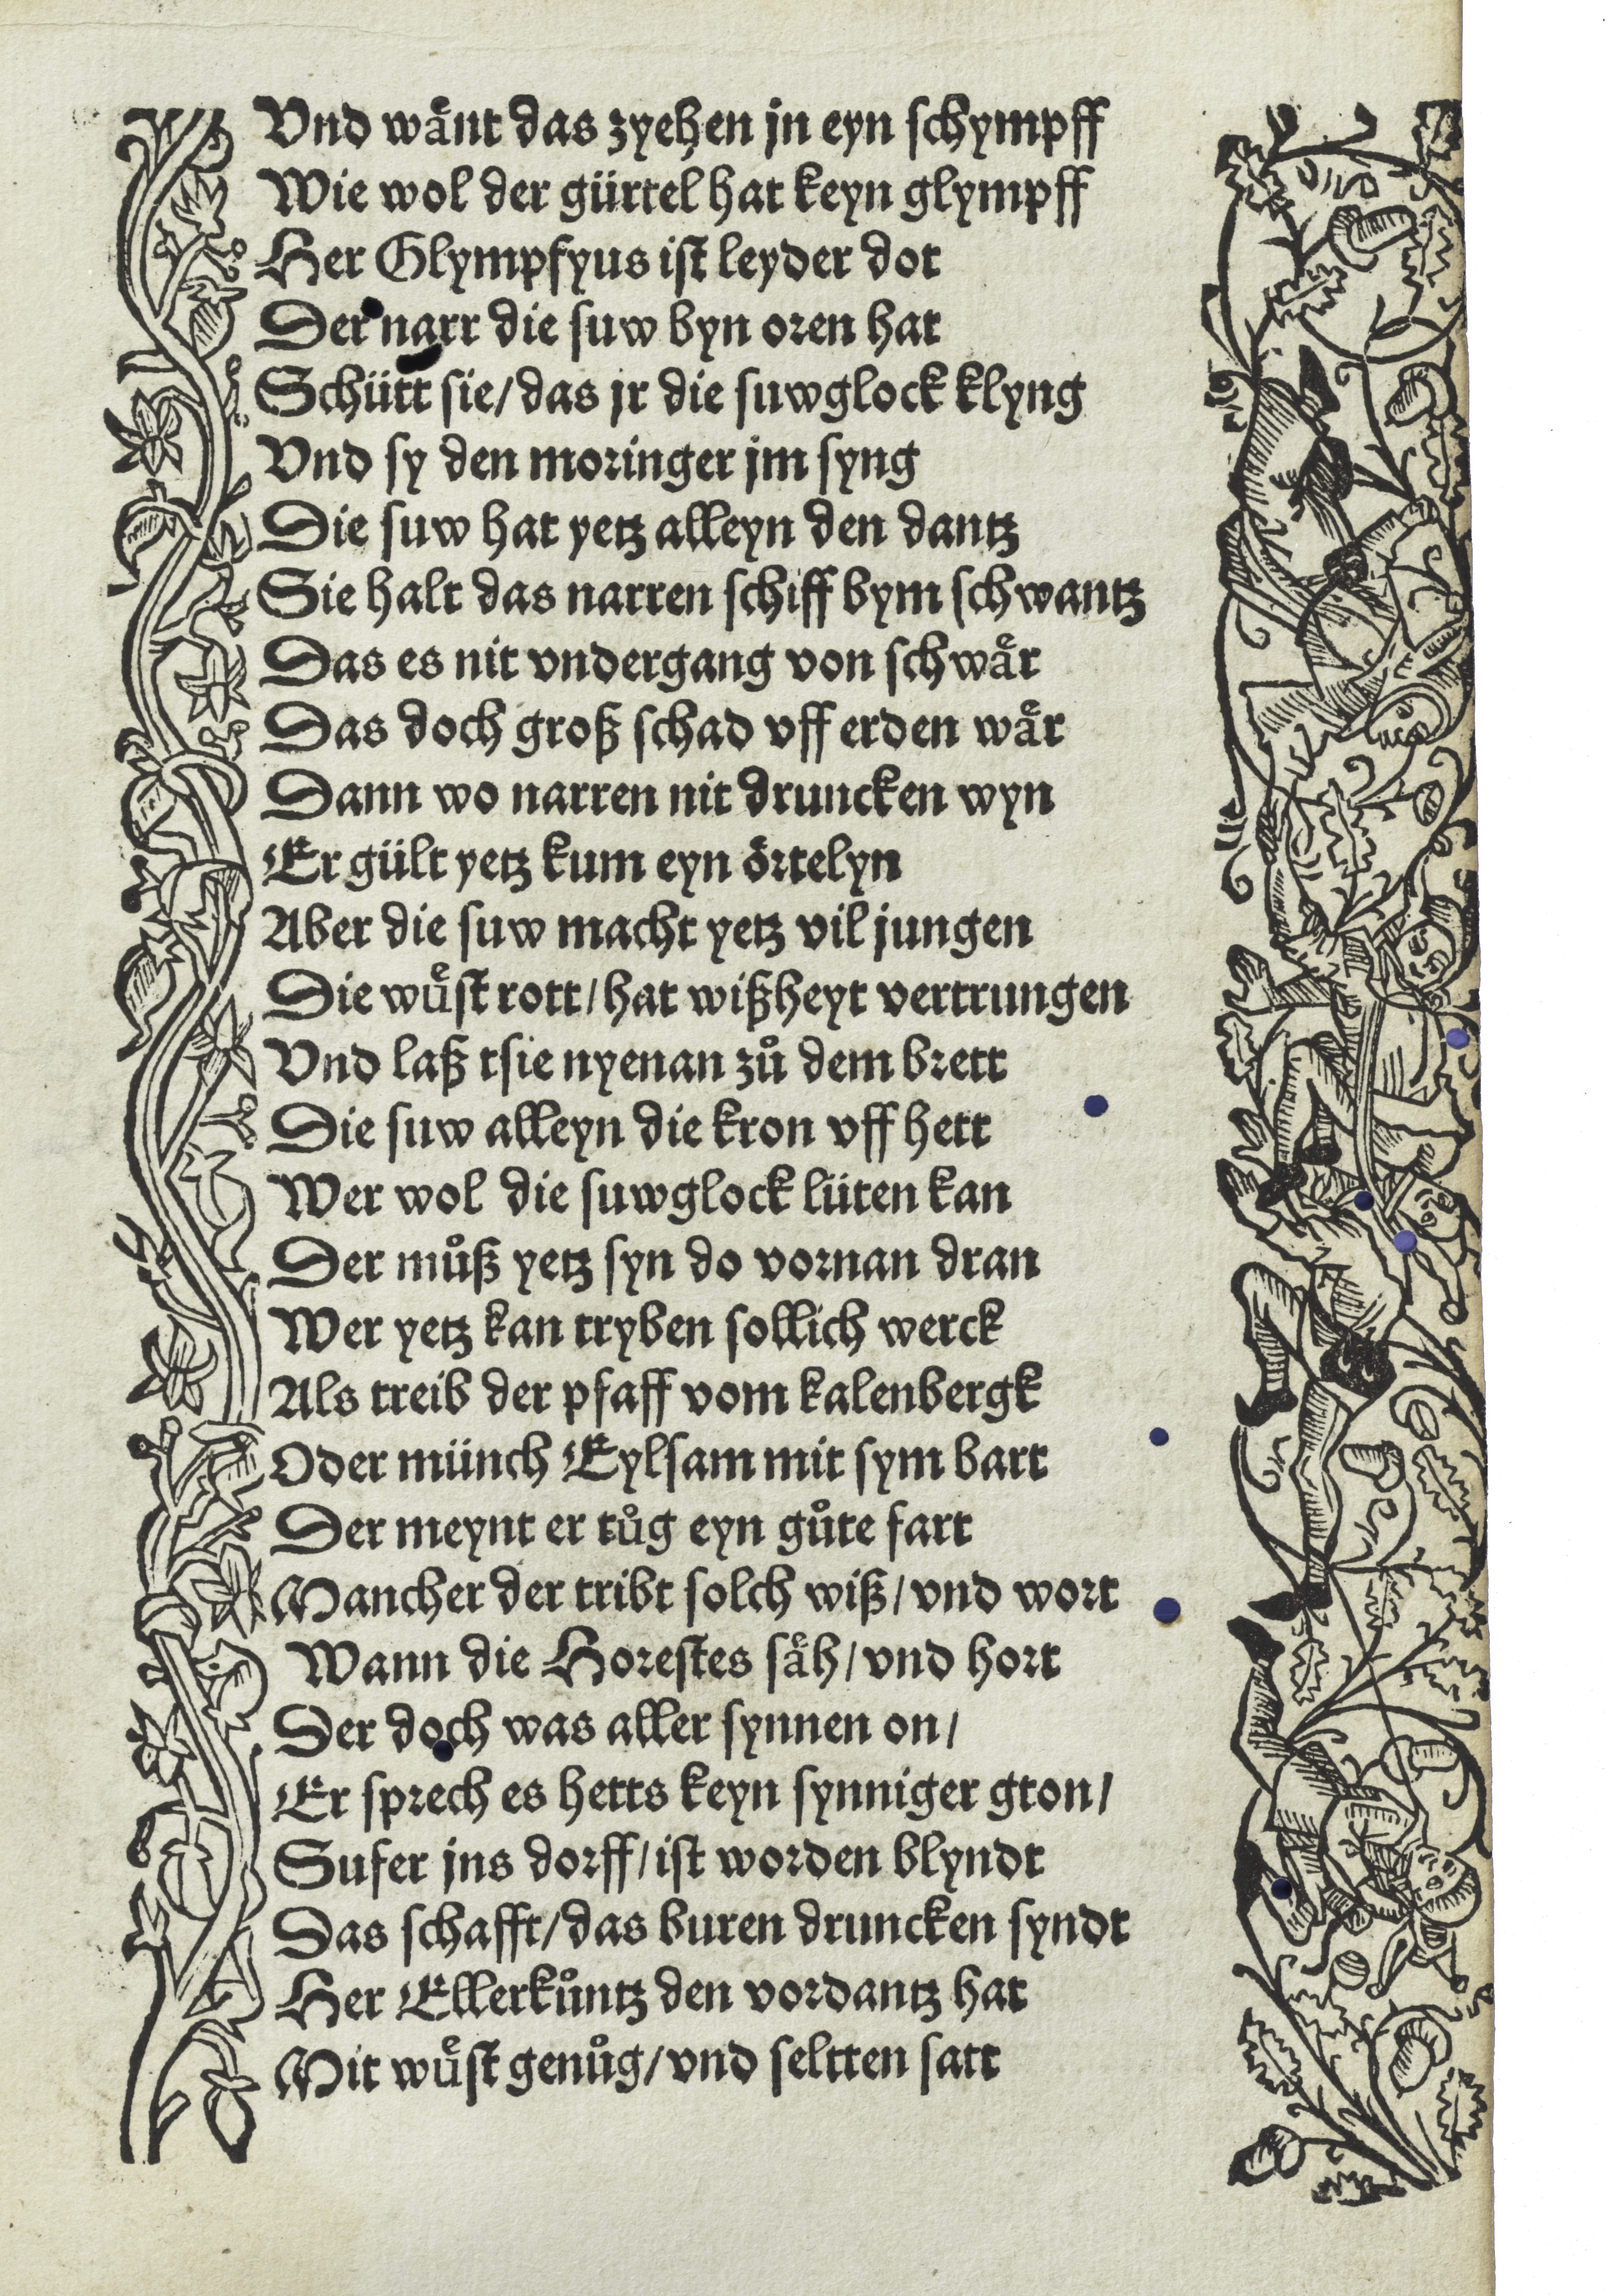 Vnd waͤnt das zyehen jn eyn schympff
Wie wol der gürtel hat keyn glympff
Her Glympfyus ist leyder dot
Der narr die suw byn oren hat
Schütt sie/das jr die suwglock klyng
Vnd sy den moringer jm syng
Die suw hat yetz alleyn den dantz
Sie halt das narren schiff bym schwantz
Das es nit vndergang von schwaͤr
Das doch groß schad vff erden waͤr
Dann wo narren nit druncken wyn
Er gült yetz kum eyn örtelyn
Aber die suw macht yetz vil jungen
Die wuͤst rott/hat wißheyt vertrungen
Vnd laß tsie nyenan zuͦ dem brett
Die suw alleyn die kron vff hett
Wer wol die suwglock lüten kan
Der muͦß yetz syn do vornan dran
Wer yetz kan tryben sollich werck
Als treib der pfaff vom kalenbergk
Oder münch Eylsam mit sym bart
Der meynt er tuͦg eyn guͦte fart
Mancher der tribt solch wiß/vnd wort
Wann die Horestes saͤh/vnd hort
Der doch was aller synnen on/
Er sprech es hetts keyn synniger gton/
Sufer jns dorff/ist worden blyndt
Das schafft/das buren druncken syndt
Her Ellerkuͦntz den vordantz hat
Mit wuͤst genuͦg/vnd seltten satt